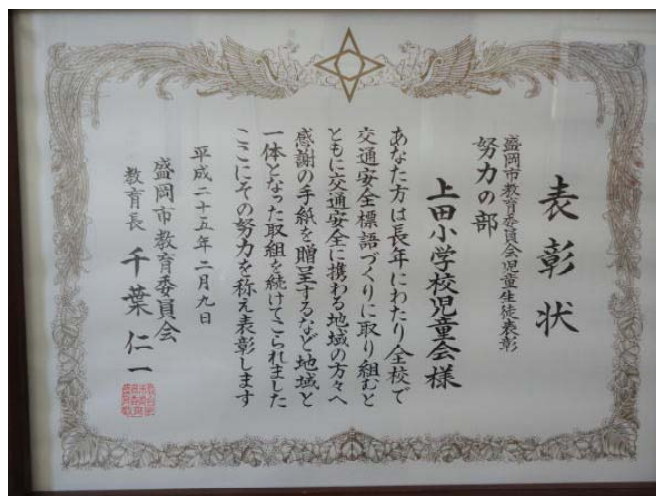 表彰状
盛岡市教育委員会児童生徒表彰
努力の部
上田小学校児童会様
あなた方は長年にわたり全校で
交通安全標語づくりに取り組むと
ともに交通安全に携わる地域の方々へ
感謝の手紙を贈呈するなど地域と
一体となった取組を続けてこられました
ここにその努力を称え表彰します
平成二十五年二月九日
盛岡市教育委員会
教育長 千葉仁一